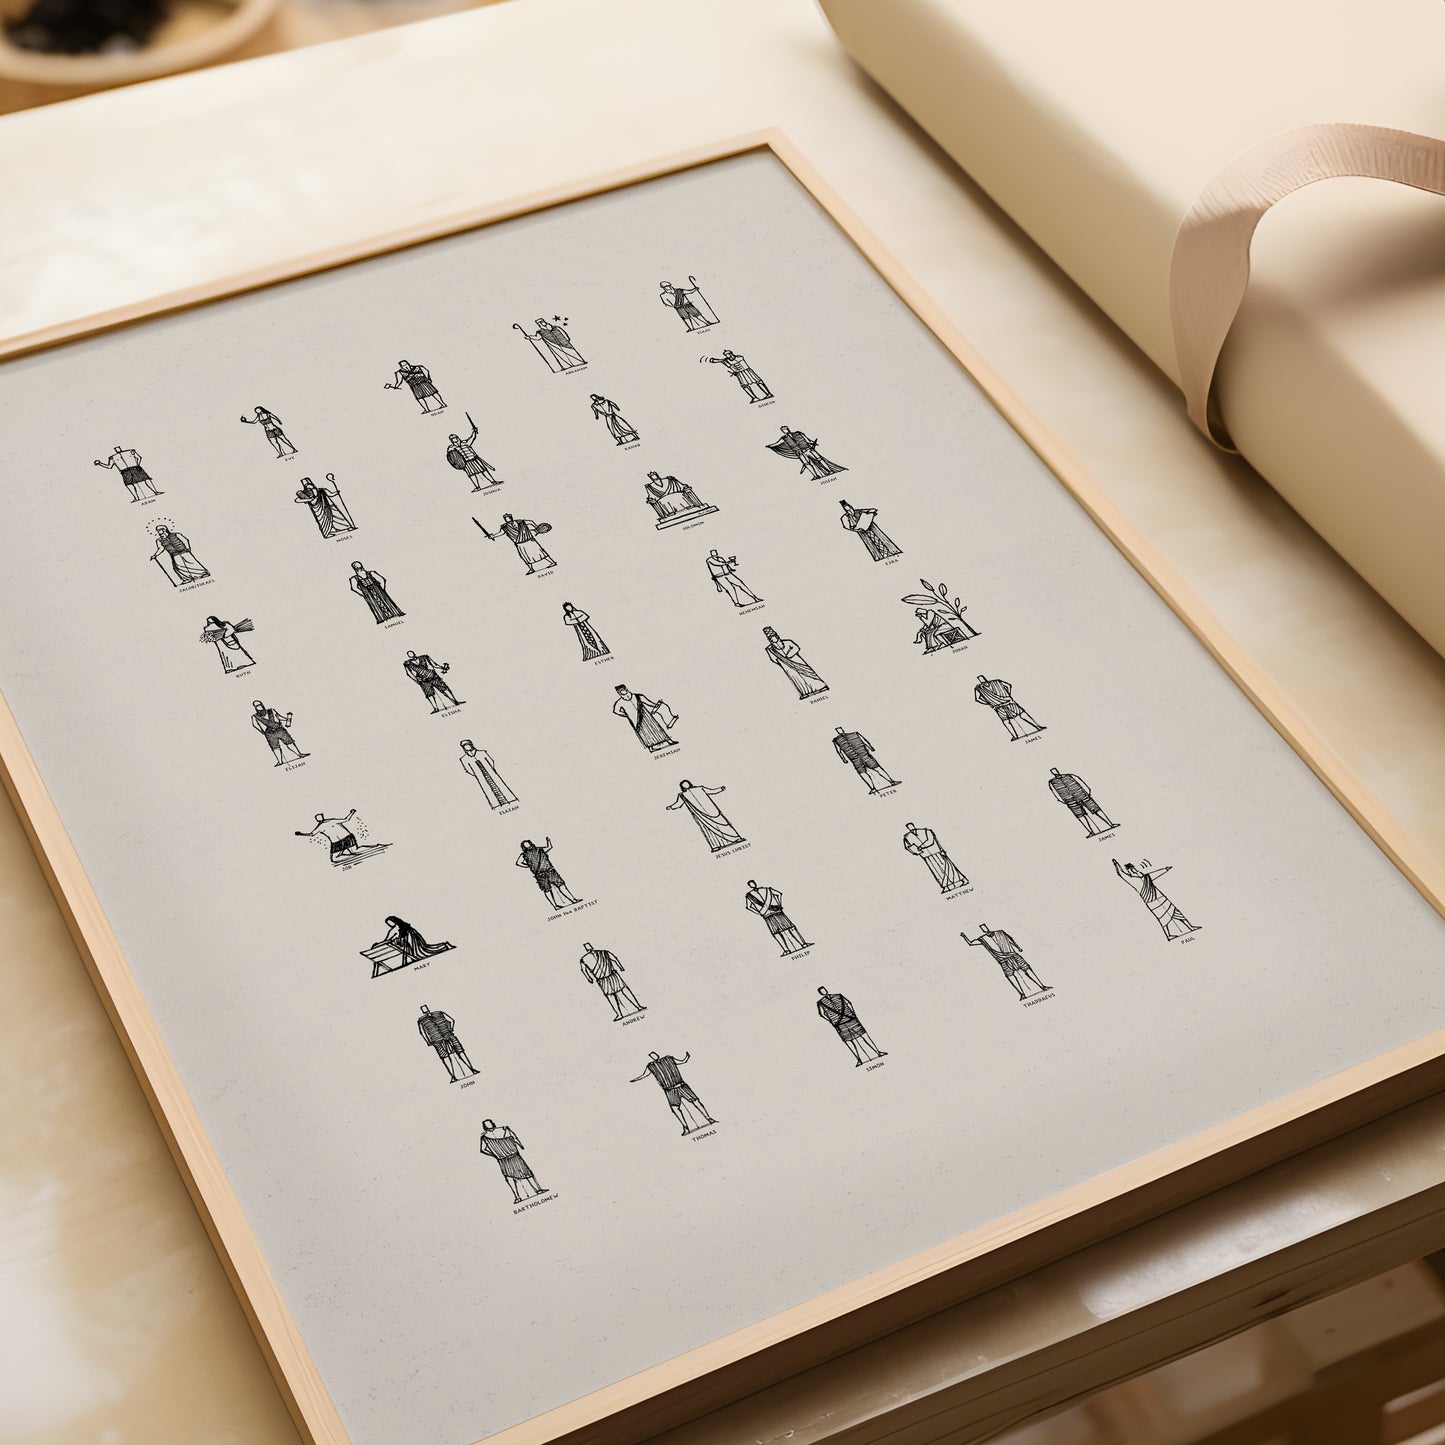 ADAM
EVE
NOAH
ABRAHAM
ISAAC
JACOB/ISRAEL
MOSES
JOSHUA
RAHAB
GIDEON
RUTH
SAMUEL
DAVID
SOLOMON
JOSIAH
ELIJAH
ELISHA
ESTHER
NEHEMIAH
EZRA
JOB
ISAIAH
JEREMIAH
DANIEL
JONAH
MARY
JOHN the BAPTIST
JESUS CHRIST
PETER
JAMES
JOHN
ANDREW
PHILIP
MATTHEW
JAMES
BARTHOLOMEW
THOMAS
SIMON
THADDAEUS
PAUL